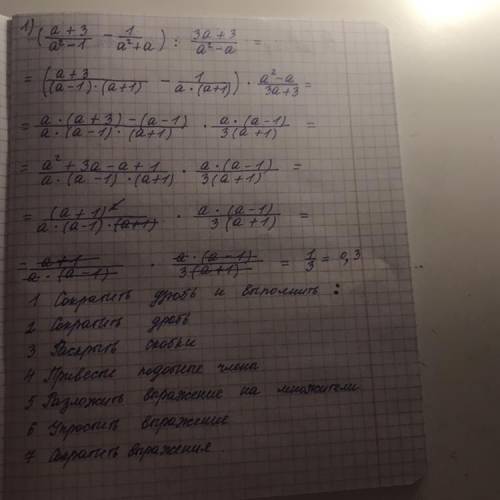 1) ( (a + 3)/(a² - 1) - 1/(a² + a) ) : (3a + 3)/(a² - a) =
= ( (a + 3)/((a - 1) · (a + 1)) - 1/(a · (a + 1)) ) · (a² - a)/(3a + 3) =
= (a · (a + 3) - (a - 1))/(a · (a - 1) · (a + 1)) · (a · (a - 1))/(3(a + 1)) =
= (a² + 3a - a + 1)/(a · (a - 1) · (a + 1)) · (a · (a - 1))/(3(a + 1)) =
= (a + 1)²/(a · (a - 1) · (a + 1)) · (a · (a - 1))/(3(a + 1)) =
= (a + 1)/(a · (a - 1)) · (a · (a - 1))/(3(a + 1)) = 1/3 = 0,3
1 Сократить дробь и выполнить :
2 Сократить дробь
3 Раскрыть скобки
4 Привести подобные члены
5 Разложить выражение на множители
6 Упростить выражение
7 Сократить выражения